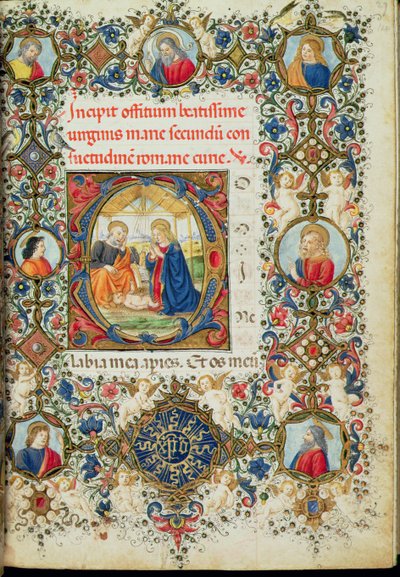 Incipit offitium beatissime
uirginis marie secundũ con
suetudinẽ romane curie.
D
ne
labia mea apies. Et os meũ